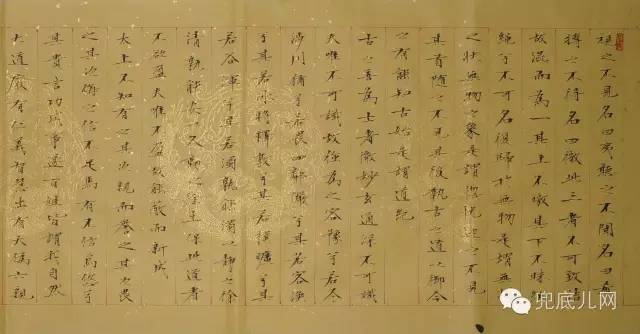 視之不見名曰夷聽之不聞名曰希
搏之不得名曰微此三者不可致詰
故混而為一其上不皦其下不昧繩
繩兮不可名復歸於無物是謂無狀
之狀無物之象是謂惚恍迎之不見
其首隨之不見其後執古之道以御今
之有能知古始是謂道紀
古之善為士者微妙玄通深不可識
夫唯不可識故強為之容豫兮若冬
涉川猶兮若畏四鄰儼兮其若容渙
兮其若冰將釋敦兮其若樸曠兮其
若谷渾兮其若濁孰能濁以靜之徐
清孰能安以久動之徐生保此道者
不欲盈夫唯不盈故能蔽而新成
太上不知有之其次親而譽之其次畏
之其次侮之信不足焉有不信焉悠兮
其貴言功成事遂百姓皆謂我自然
大道廢有仁義智慧出有大偽六親
兜底儿网